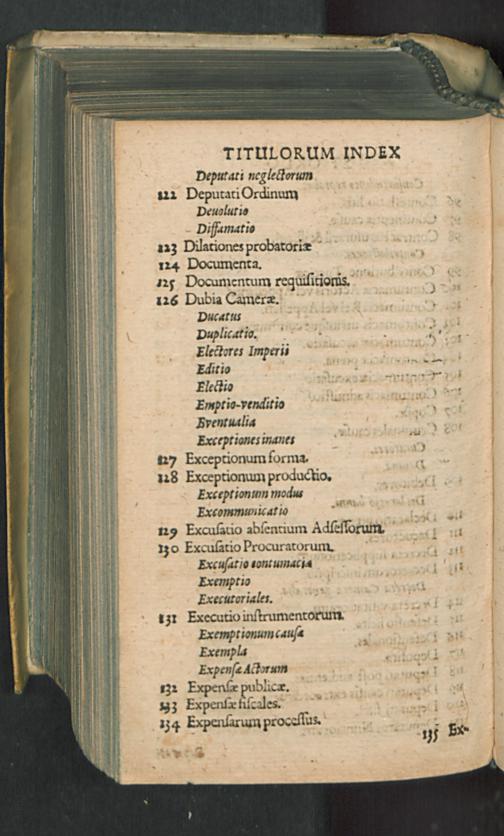 TITULORUM INDEX
Deputati neglectorum
122 Deputati Ordinum
Devolutio
Diffamatio
123 Dilationes probatoriæ
124 Documenta.
125 Documentum requisitionis.
126 Dubia Cameræ.
Ducatus
Duplicatio.
Electores Imperii
Editio
Electio
Emptio-venditio
Eventualia
Exceptiones inanes
127 Exceptionum forma.
128 Exceptionum productio.
Exceptionum modus
Excommunicatio
129 Excusatio absentium Adsessorum.
130 Excusatio Procuratorum.
Excusatio contumacia
Exemptio
Executoriales.
131 Executio instrumentorum.
Exemptionum causæ
Exempla
Expensæ Actorum
132 Expensæ publicæ.
133 Expensæ fiscales.
134 Expensarum processus.
135 Ex-